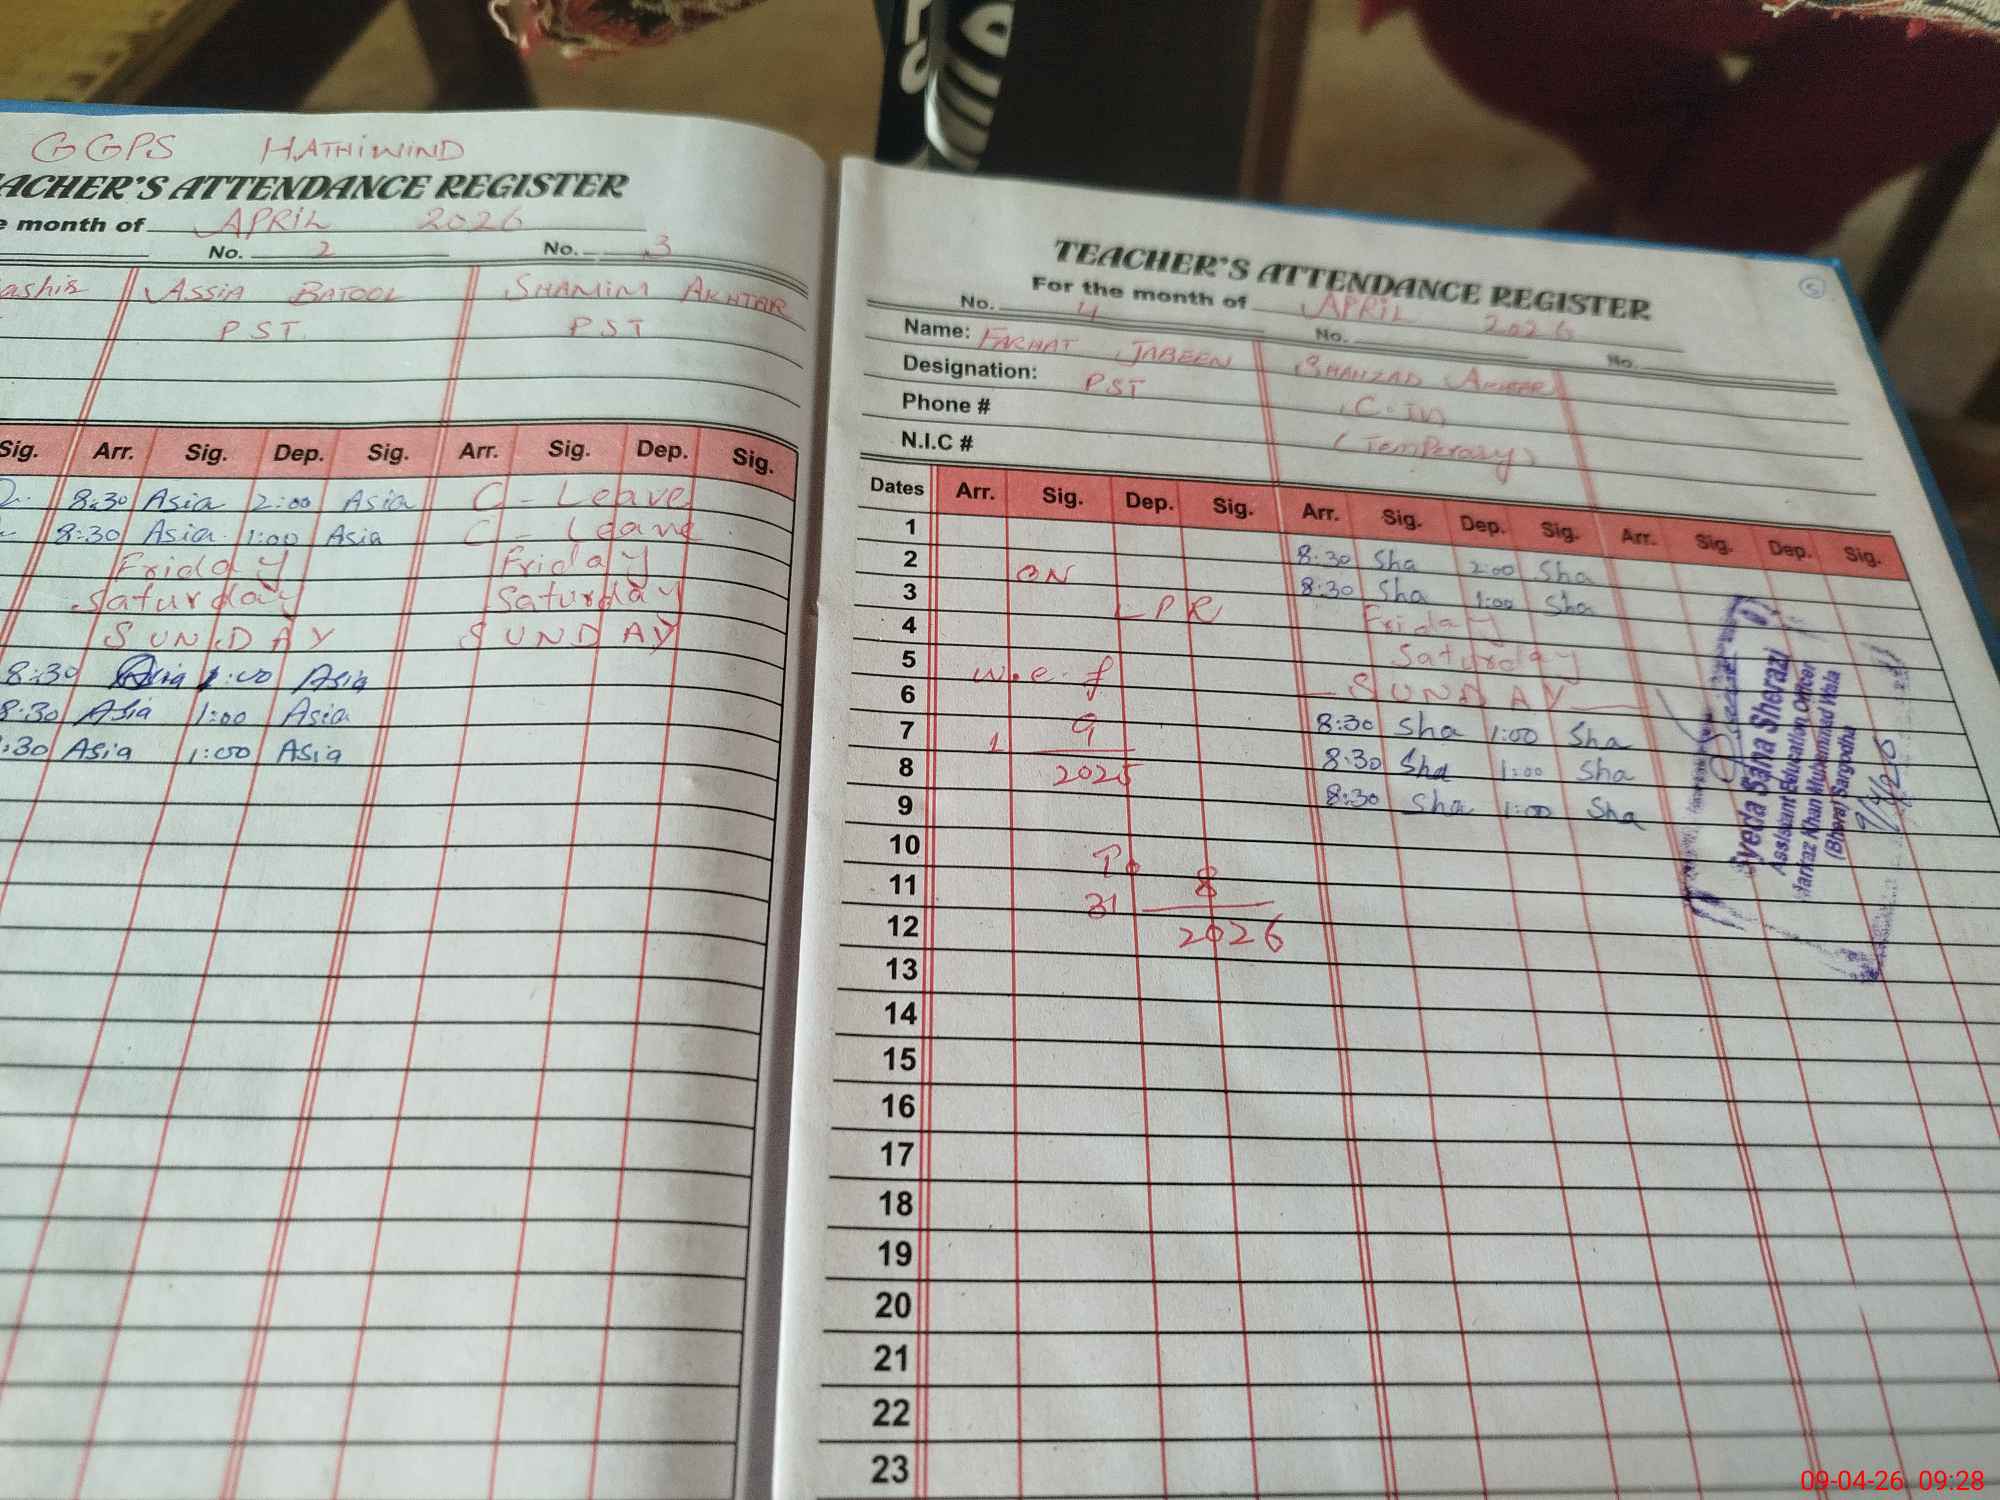 GGPS HATHIWIND
ACHER'S ATTENDANCE REGISTER
e month of APRIL 2026
No. 2 No. 3
ashir ASSIA BATOOL SHAMIM AKHTAR
PST. PST
Sig. Arr. Sig. Dep. Sig. Arr. Sig. Dep. Sig.
8:30 Asia 2:00 Asia C - Leave
8:30 Asia. 1:00 Asia C - Leave
Friday Friday
Saturday Saturday
SUNDAY SUNDAY
8:30 Asia 1:00 Asia
8:30 Asia 1:00 Asia
:30 Asia 1:00 Asia
TEACHER'S ATTENDANCE REGISTER
5
For the month of APRIL 2026
No. 4 No. No.
Name: FARHAT JABEEN SHAHZAD
Designation: PST
Phone #
N.I.C # (Temperary)
Dates Arr. Sig. Dep. Sig. Arr. Sig. Dep. Sig. Arr. Sig. Dep. Sig.
1 8:30 Sha 2:00 Sha
2 ON 8:30 Sha 1:00 Sha
3 LPR Friday
4 Saturday
5 w.e.f SUNDAY
6 8:30 Sha 1:00 Sha
7 1 9 8:30 Sha 1:00 Sha
8 2025 8:30 Sha 1:00 Sha
9
10 To 8
11 31
12 2026
13
14
15
16
17
18
19
20
21
22
23
Syeda Sana Sherazi
Assistant Education Officer
Markaz Khan Muhammad Wala
(Bhera) Sargodha
09-04-26 09:28